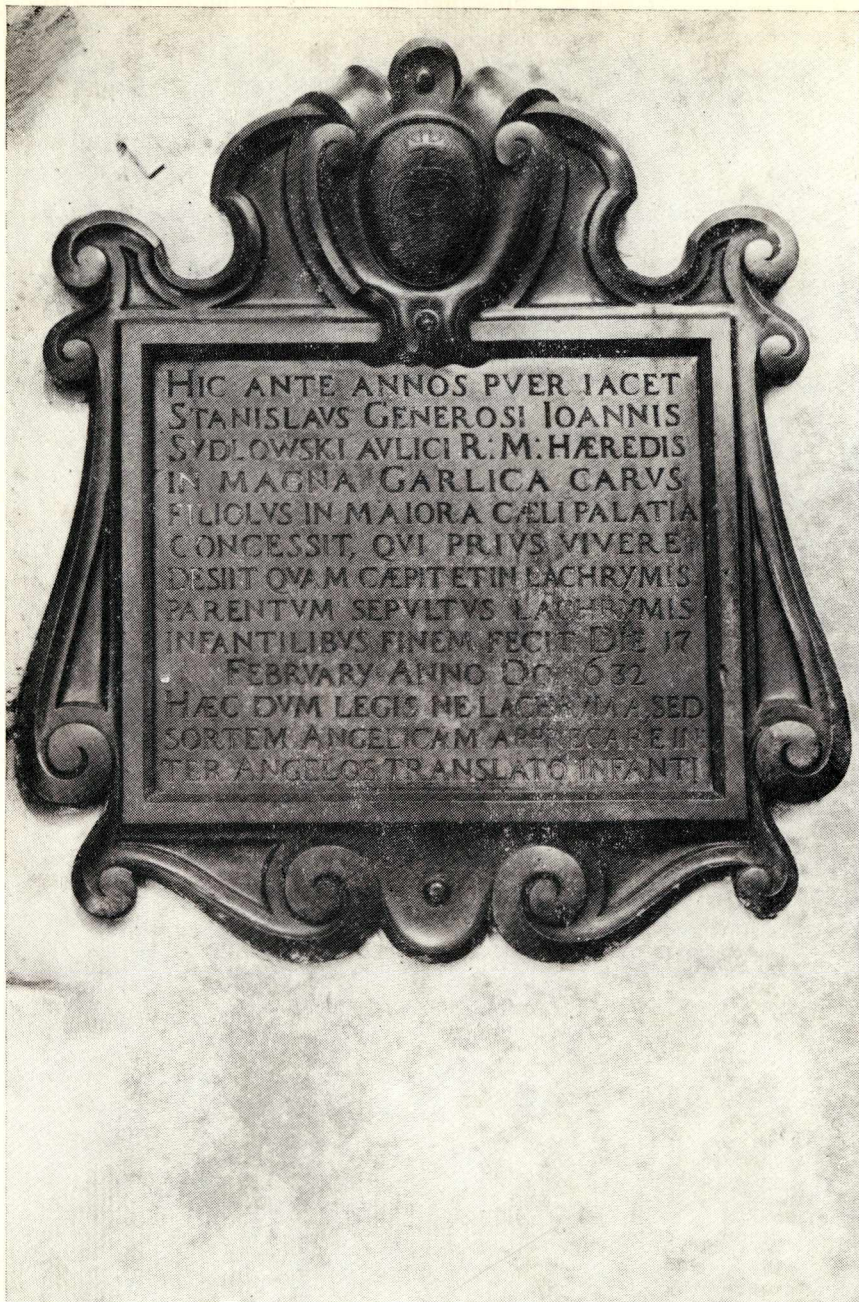 HIC ANTE ANNOS PVER IACET
STANISLAVS GENEROSI IOANNIS
SYDLOWSKI AVLICI R: M: HÆREDIS
IN MAGNA GARLICA CARVS
FILIOLVS IN MAIORA CÆLI PALATIA
CONCESSIT, QVI PRIVS VIVERE
DESIIT QVAM CÆPIT ET IN LACHRYMIS
PARENTVM SEPVLTVS LACHRYMIS
INFANTILIBVS FINEM FECIT DIE 17
FEBRVARY ANNO DO 632
HÆC DVM LEGIS NE LACHRYMA, SED
SORTEM ANGELICAM APPRECARE IN
TER ANGELOS TRANSLATO INFANTI